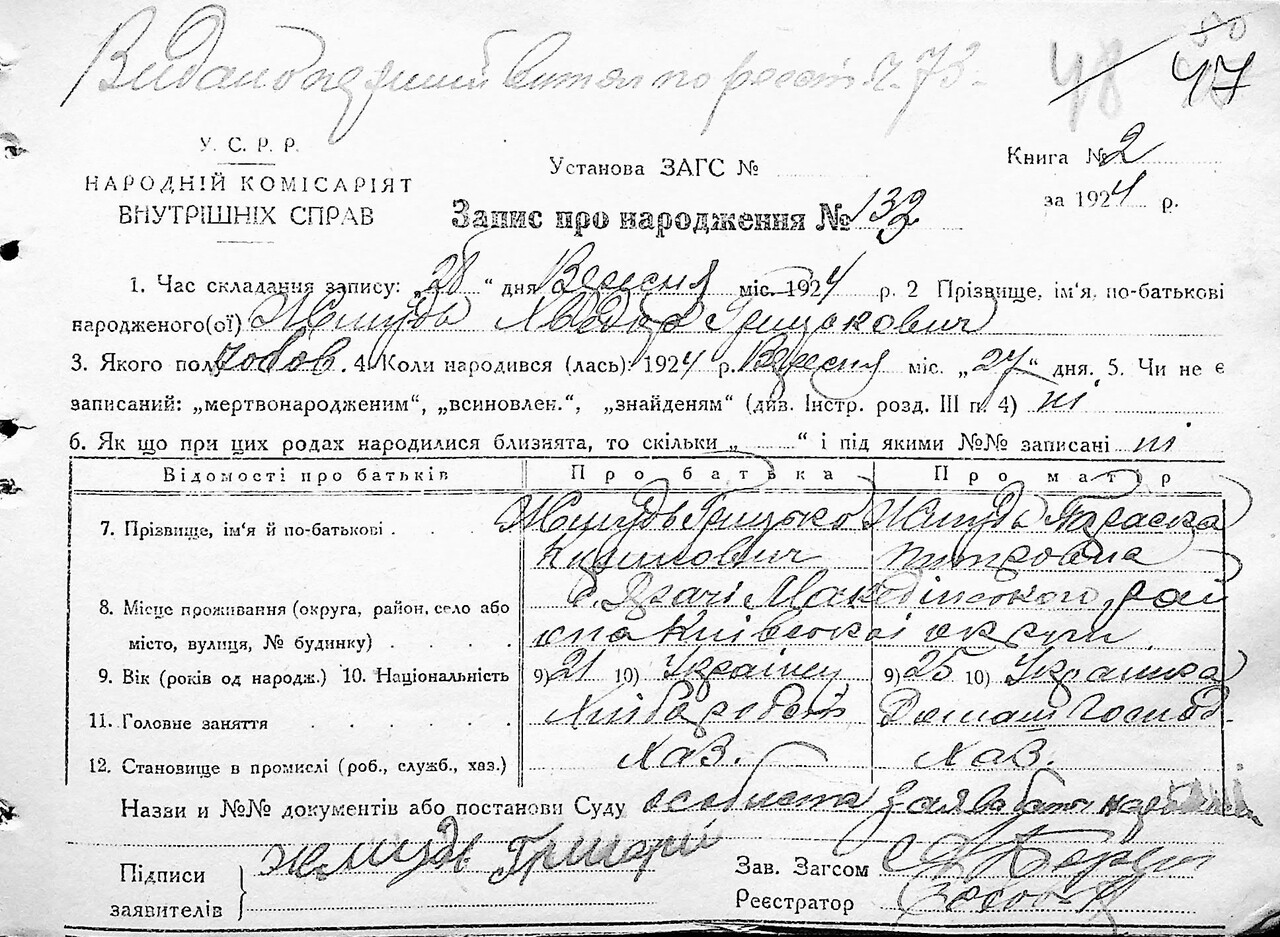 Видано повторний витяг по реєст. ч. 73
48 50 47
У. С. Р. Р.
НАРОДНІЙ КОМІСАРІЯТ
ВНУТРІШНІХ СПРАВ
Установа ЗАГС №
Запис про народження № 132
Книга № 2
за 1924 р.
1. Час складання запису: „28“ дня Вересня міс. 1924 р. 2 Прізвище, ім'я, по-батькові
народженого(ої) Жмудь Хведор Грицькович
3. Якого пол чолов. 4. Коли народився (лась): 1924 р. Вересня міс. „27“ дня. 5. Чи не є
записаний: „мертвонародженим“, „всиновлен.“, „знайденям“ (див. Інстр. розд. III п. 4) ні
6. Як що при цих родах народилися близнята, то скільки „ “ і під якими №№ записані ні
Відомості про батьків Про батька Про матір
7. Прізвище, ім'я й по-батькові . . . . Жмудь Грицько Жмудь Параска
Петровна
8. Місце проживання (округа, район, село або
місто, вулиця, № будинку) . . . . .
с. Макобійського рай
она Київської округи
9. Вік (років од народж.) 10. Національність 9) 21 10) Українец 9) 25 10) Українка
11. Головне заняття . . . . . Хлібороб Домаш Господ.
12. Становище в промислі (роб., служб., хаз.) Хаз. Хаз.
Назви и №№ документів або постанови Суду особиста заява батька
Підписи
заявителів
Жмудь Григорій
Зав. Загсом
Реєстратор